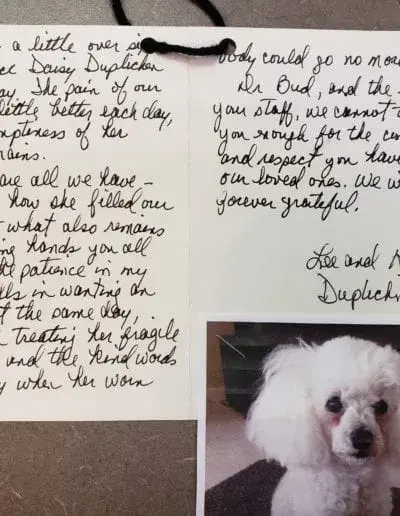 a little over si
ce Daisy Duplicken
ay. The pain of our
little better each day,
mptiness of her
ains.
are all we have -
how she filled our
what also remains
ing hands you all
he patience in my
lls in wanting an
t the same day,
treating her fragile
and the kind words
y when her worn
body could go no more
Dr Bud, and the
your staff, we cannot
you enough for the
and respect you have
our loved ones. We wi
forever grateful.
Lee and
Duplick